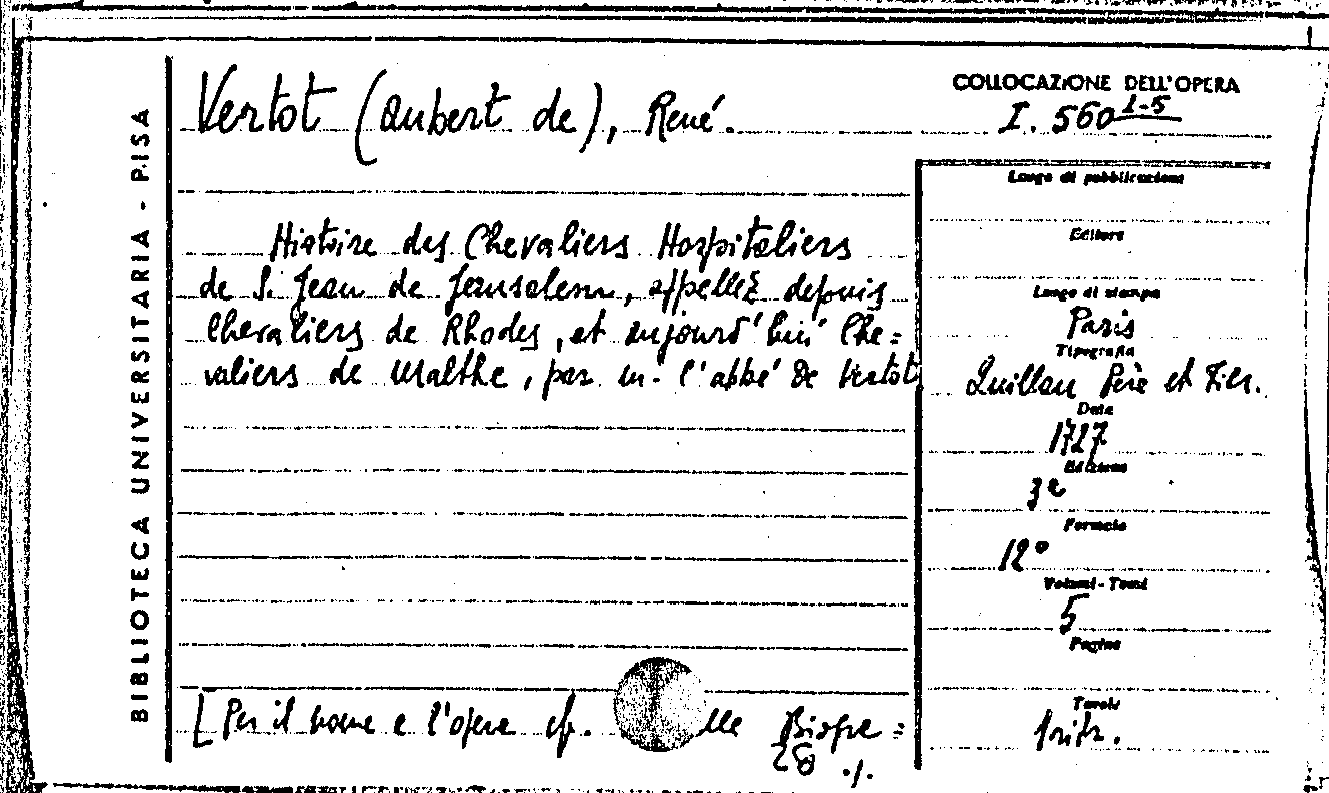 BIBLIOTECA UNIVERSITARIA - PISA
Vertot (Aubert de), René.
COLLOCAZIONE DELL'OPERA
I. 560 1-5
Luogo di pubblicazione
Editore
Histoire des Chevaliers Hospitaliers
de S. Jean de Jerusalem, appellez depuis
Chevaliers de Rhodes, et aujourd'hui Che=
valiers de Malthe, par m. l'abbé de Vertot
Luogo di stampa
Paris
Tipografia
Quillau Père et Fils.
Data
1727
Edizione
3e
Formato
12°
Volumi - Tomi
5
Pagine
Tavole
[Per il nome e l'opera cfr. lle Biogra=
28 ./.